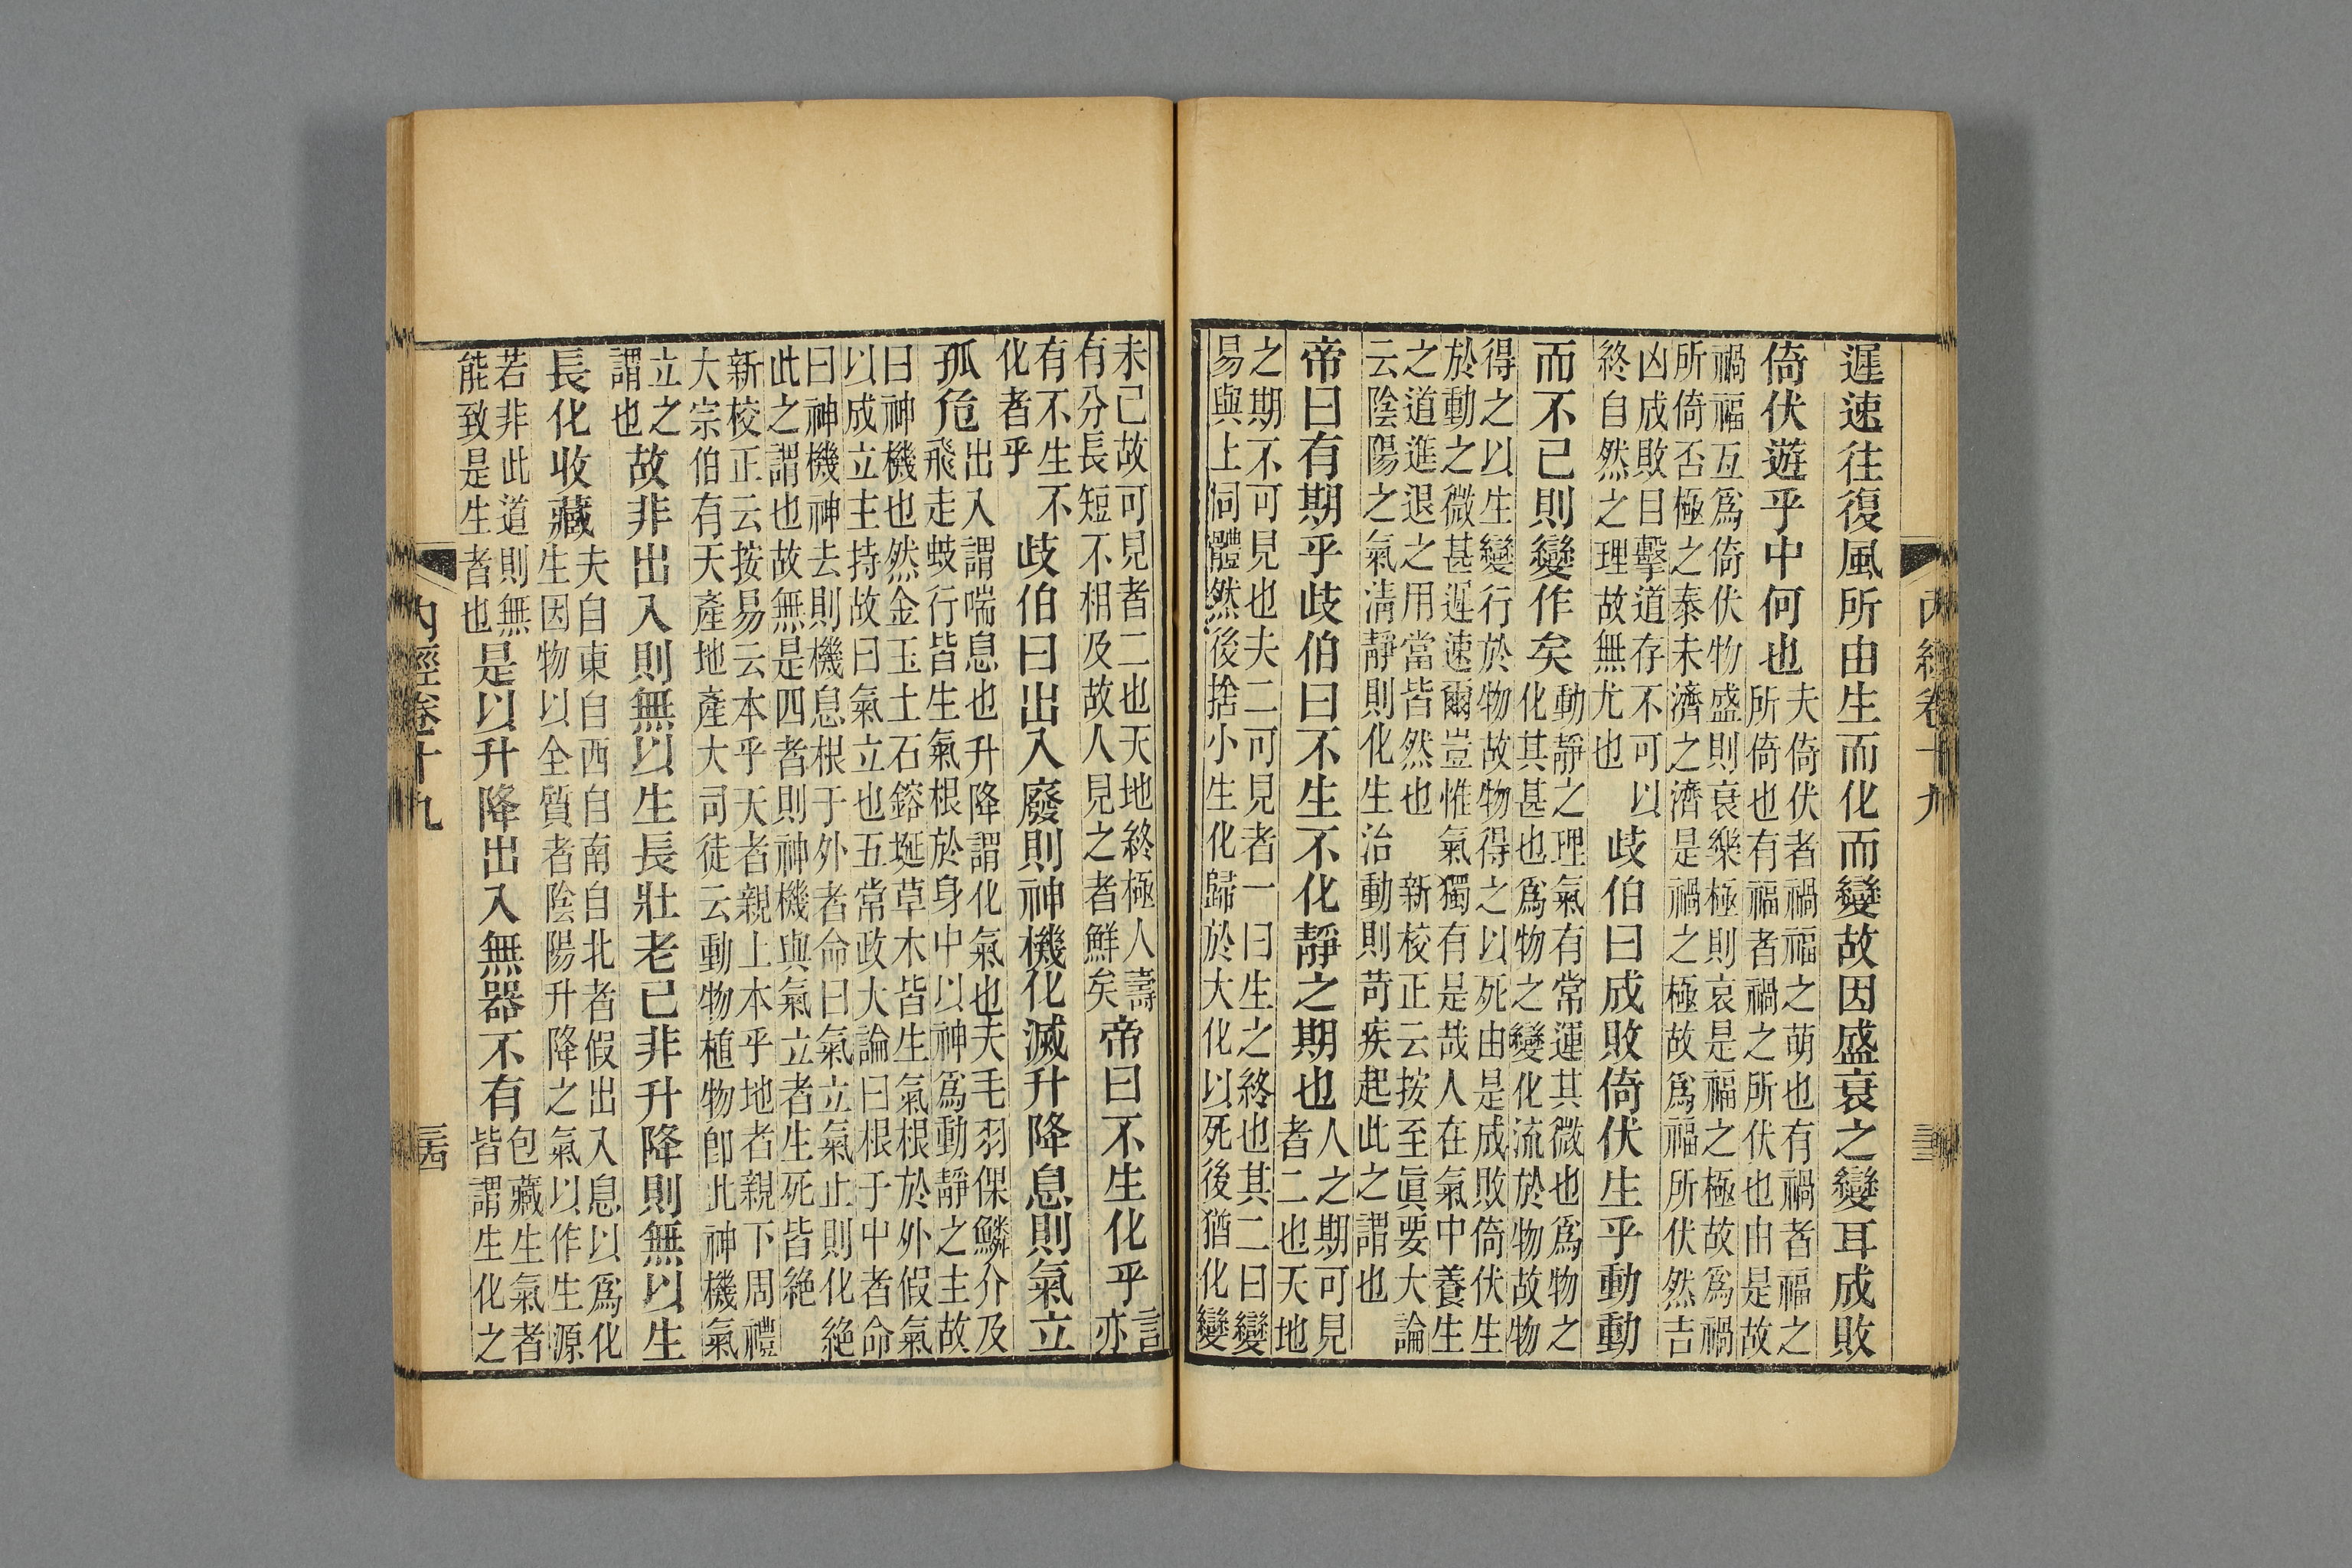 遲速往復風所由生而化而變故因盛衰之變耳成敗
倚伏遊乎中何也
夫倚伏者禍福之萌也有禍者福之
所倚也有福者禍之所伏也由是故
禍福互爲倚伏物盛則衰樂極則哀是福之極故爲禍
所倚否極之泰未濟之濟是禍之極故爲福所伏然吉
凶成敗目擊道存不可以
終自然之理故無尤也
歧伯曰成敗倚伏生乎動動
而不己則變作矣
動靜之理氣有常運其微也爲物之
化其甚也爲物之變化流於物故物
得之以生變行於物故物得之以死由是成敗倚伏生
於動之微甚遲速爾豈惟氣獨有是哉人在氣中養生
之道進退之用當皆然也 新校正云按至眞要大論
云陰陽之氣淸靜則化生治動則苛疾起此之謂也
帝曰有期乎歧伯曰不生不化靜之期也
人之期可見
者二也天地
之期不可見也夫二可見者一曰生之終也其二曰變
易與上同體然後捨小生化歸於大化以死後猶化變
未己故可見者二也天地終極人壽
有分長短不相及故人見之者鮮矣
帝曰不生化乎
言
亦
有不生不
化者乎
歧伯曰出入廢則神機化滅升降息則氣立
孤危
出入謂喘息也升降謂化氣也夫毛羽倮鱗介及
飛走蚑行皆生氣根於身中以神爲動靜之主故
曰神機也然金玉土石鎔埏草木皆生氣根於外假氣
以成立主持故曰氣立也五常政大論曰根于中者命
曰神機神去則機息根于外者命曰氣立氣止則化絶
此之謂也故無是四者則神機與氣立者生死皆絶
新校正云按易云本乎天者親上本乎地者親下周禮
大宗伯有天產地產大司徒云動物植物卽此神機氣
立之
謂也
故非出入則無以生長壯老已非升降則無以生
長化收藏
夫自東自西自南自北者假出入息以爲化
生因物以全質者陰陽升降之氣以作生源
若非此道則無
能致是生者也
是以升降出入無器不有
包藏生氣者
皆謂生化之
內經卷十九